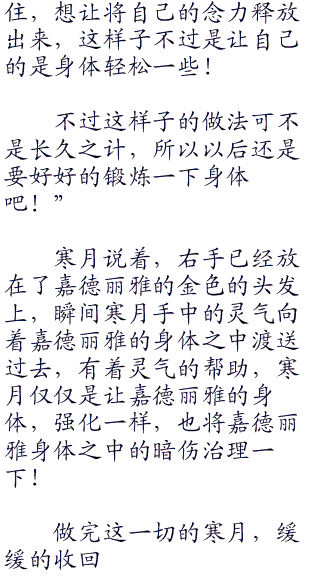 住，想让将自己的念力释放
出来，这样子不过是让自己
的是身体轻松一些！
不过这样子的做法可不
是长久之计，所以以后还是
要好好的锻炼一下身体
吧！”
寒月说着，右手已经放
在了嘉德丽雅的金色的头发
上，瞬间寒月手中的灵气向
着嘉德丽雅的身体之中渡送
过去，有着灵气的帮助，寒
月仅仅是让嘉德丽雅的身
体，强化一样，也将嘉德丽
雅身体之中的暗伤治理一
下！
做完这一切的寒月，缓
缓的收回